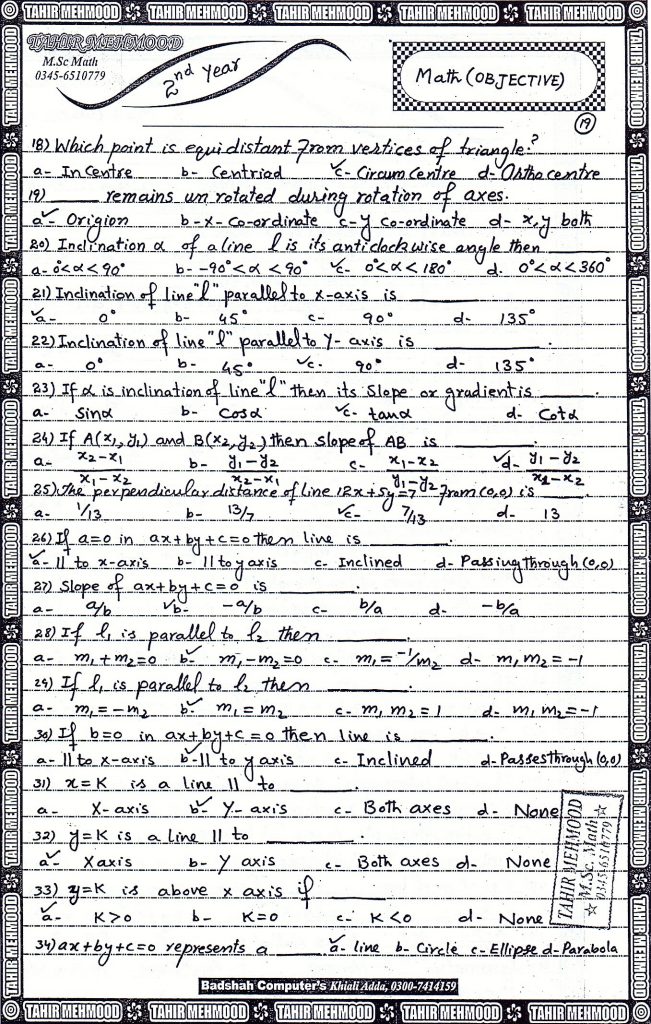 TAHIR MEHMOOD TAHIR MEHMOOD TAHIR MEHMOOD TAHIR MEHMOOD TAHIR MEHMOOD
TAHIR MEHMOOD
M.Sc Math
0345-6510779
2nd Year
Math (OBJECTIVE)
19
18) Which point is equidistant from vertices of triangle?
a- InCentre b- Centriod ✓c- Circumcentre d- Orthocentre
19) ______ remains unrotated during rotation of axes.
a✓- Origion b- x-co-ordinate c- y co-ordinate d- x,y both
20) Inclination α of a line l is its anticlockwise angle then ______
a- 0°<α<90° b- -90°<α<90° ✓c- 0°<α<180° d. 0°<α<360°
21) Inclination of line "l" parallel to x-axis is ______
✓a- 0° b- 45° c- 90° d- 135°
22) Inclination of line "l" parallel to Y-axis is ______.
a- 0° b- 45° ✓c- 90° d- 135°
23) If α is inclination of line "l" then its Slope or gradient is ______.
a- Sinα b- Cosα ✓c- tanα d- Cotα
24) If A(x₁,y₁) and B(x₂,y₂) then slope of AB is ______.
a- x₂-x₁/x₁-x₂ b- y₁-y₂/x₂-x₁ c- x₁-x₂/y₁-y₂ ✓d- y₁-y₂/x₁-x₂
25) The perpendicular distance of line 12x+5y=7 from (0,0) is ______.
a- 1/13 b- 13/7 ✓c- 7/13 d- 13
26) If a=0 in ax+by+c=0 then line is ______.
✓a- || to x-axis b- || to y axis c- Inclined d- Passing through (0,0)
27) Slope of ax+by+c=0 is ______.
a- a/b ✓b- -a/b c- b/a d- -b/a
28) If l₁ is parallel to l₂ then ______.
a- m₁+m₂=0 b✓- m₁-m₂=0 c- m₁=-1/m₂ d- m₁m₂=-1
29) If l₁ is parallel to l₂ then ______.
a- m₁=-m₂ b✓- m₁=m₂ c- m₁m₂=1 d- m₁m₂=-1
30) If b=0 in ax+by+c=0 then line is ______.
a- || to x-axis b✓- || to y axis c- Inclined d- Passes through (0,0)
31) x=K is a line || to ______.
a- X-axis b✓- Y-axis c- Both axes d- None
32) y=K is a line || to ______.
a✓- X axis b- Y axis c- Both axes d- None
33) y=K is above x axis if ______
✓a- K>0 b- K=0 c- K<0 d- None
34) ax+by+c=0 represents a ______ ✓a- line b- Circle c- Ellipse d- Parabola
TAHIR MEHMOOD
☆ M.Sc. Math ☆
0345-6510779
Badshah Computer's Khiali Adda, 0300-7414159
TAHIR MEHMOOD TAHIR MEHMOOD TAHIR MEHMOOD TAHIR MEHMOOD TAHIR MEHMOOD